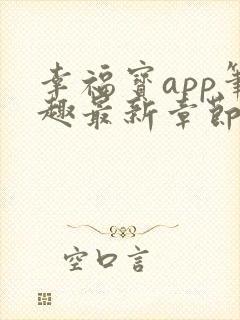 幸福宝app笔
趣最新章節
空口言